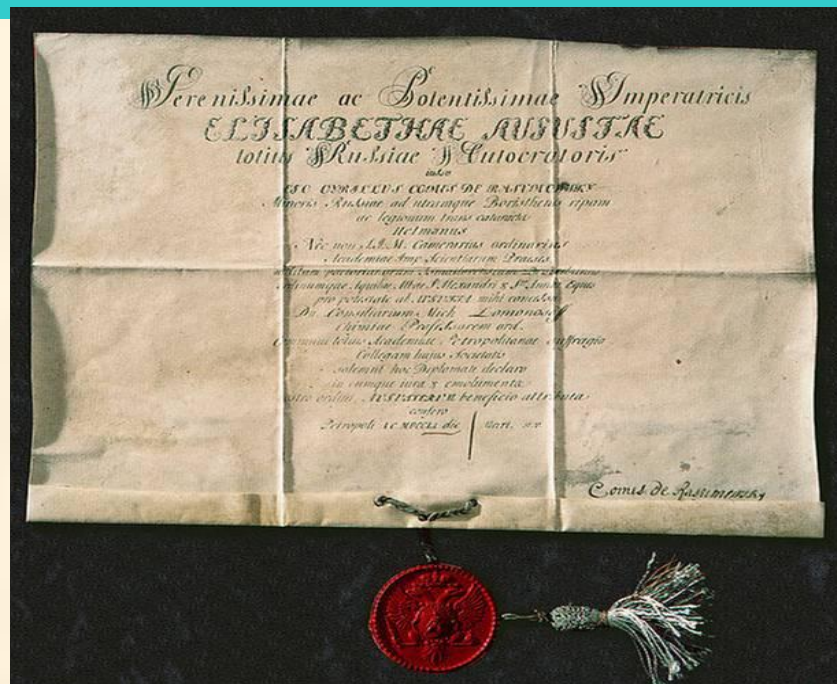 Serenissimae ac Potentissimae Imperatricis
ELISABETHAE AUGUSTAE
totius Russiae Autocratoris
iussu
EGO CYRILLUS COMES DE RASUMOWSKY
Minoris Russiae ad utramque Boristhenis ripam
ac legionum trans cataracta
Hetmanus
Nec non S.I.M. Camerarius ordinarius
Academiae Imp. Scientiarum Praeses
ordinumque Aquilae Albae S. Alexandri & S. Annae Eques
pro potestate ab AUGUSTA mihi concessa
Dn. Consiliarium Mich Lomonosoff
Chimiae Professorem ord.
Communi totius Academiae Petropolitanae suffragio
Collegam hujus Societatis
solemni hoc Diplomate declaro
in eumque iura & emolumenta
ordini AUGUSTORUM beneficio attributa
confero
Petropoli die Mart.
Comes de Rasumowsky